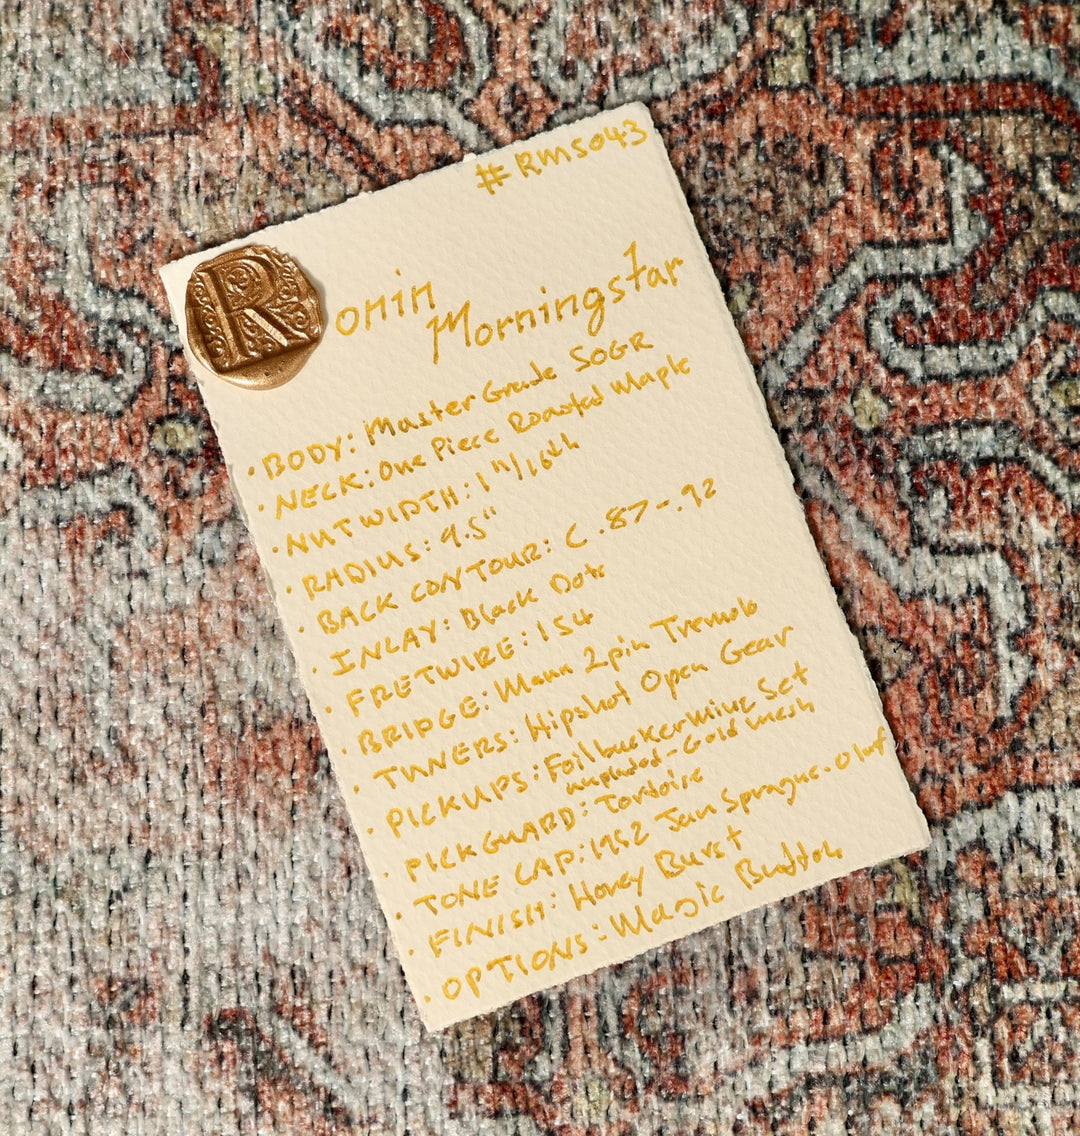 #RMS043
Ronin
Morningstar
• BODY: Master Grade SOGR
• NECK: One Piece Roasted Maple
• NUTWIDTH: 1"/16th
• RADIUS: 9.5"
• BACK CONTOUR: C .87-.92
• INLAY: Black Dots
• FRETWIRE: 154
• BRIDGE: Mann 2pin Tremolo
• TUNERS: Hipshot Open Gear
• PICKUPS: Foilbucker Set
unpotted - Gold Mesh
• PICKGUARD: Tortoise
• TONE CAP: 1952 Jan Sprague .01uf
• FINISH: Honey Burst
• OPTIONS: Magic Button